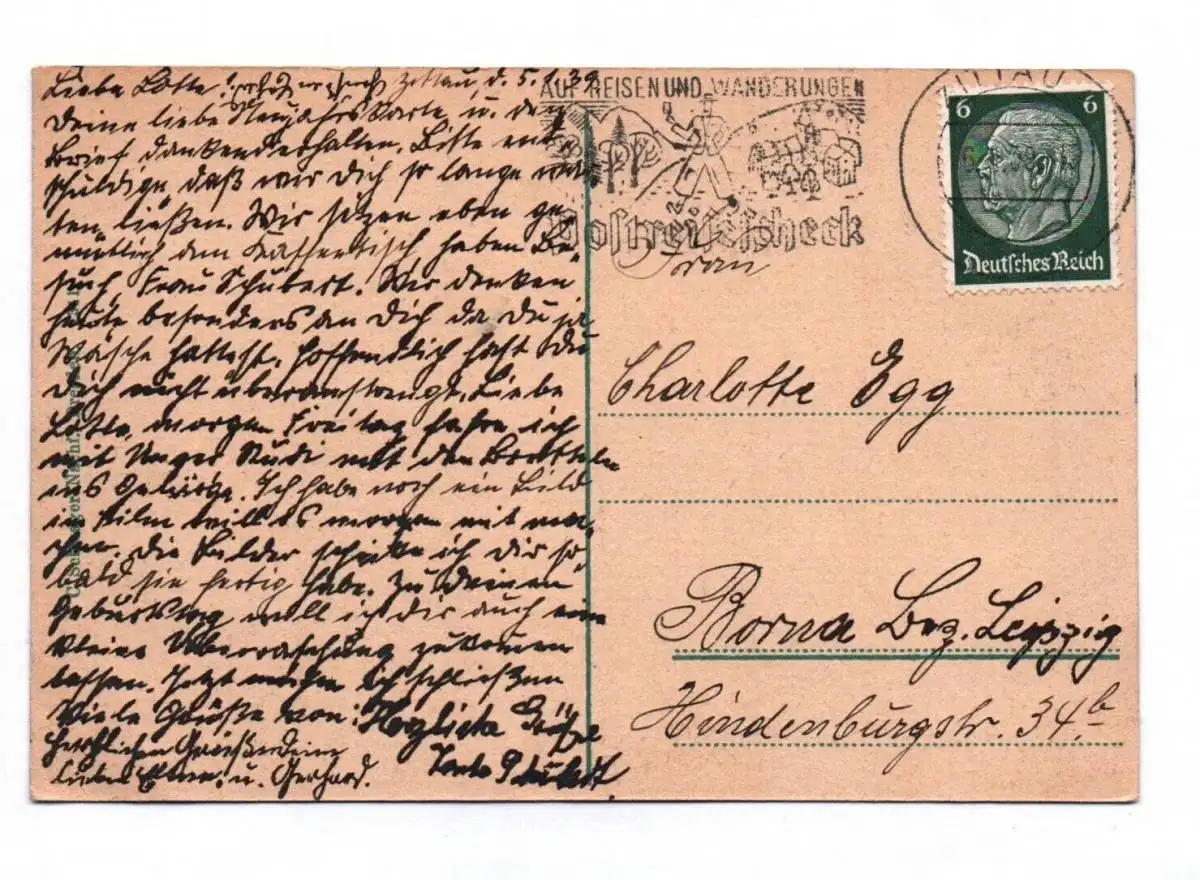 Liebe Lotte! Zittau, d. 5.1.39
Deine liebe Neujahrskarte u. den
Brief dankend erhalten. Bitte ent-
schuldige, daß wir Dich so lange war-
ten ließen. Wir sitzen eben ge-
mütlich am Kaffeetisch haben Be-
such, Frau Schubert. Wir denken
heute besonders an Dich da Du ja
Wäsche hattest, hoffendlich hast Du
Dich nicht überanstrengt. Liebe
Lotte, morgen Freitag fahre ich
mit Unger Rudi mit den Bretteln
ins Gebirge. Ich habe noch ein Bild
im Film will es morgen mit ma-
chen. Die Bilder schicke ich Dir so-
bald sie fertig habe. Zu Deinem
Geburtstag will ich Dir auch eine
kleine Überraschung zukommen
lassen. Jetzt möchte ich schließen
Viele Grüße von: Herzliche Grüße
herzlichen Grüßen Deine
lieben u. Gerhard.
AUF REISEN UND WANDERUNGEN
Postreisescheck
ZITTAU
6 6
Deutsches Reich
Frau
Charlotte Egg
Borna Bez. Leipzig
Hindenburgstr. 34b